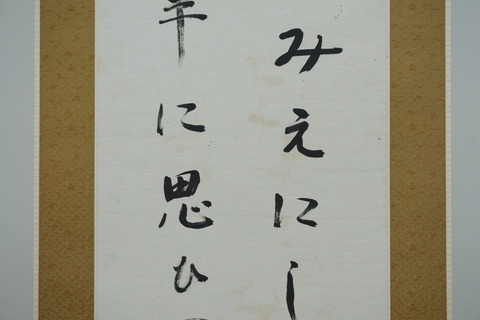 みえにし
に思ひ